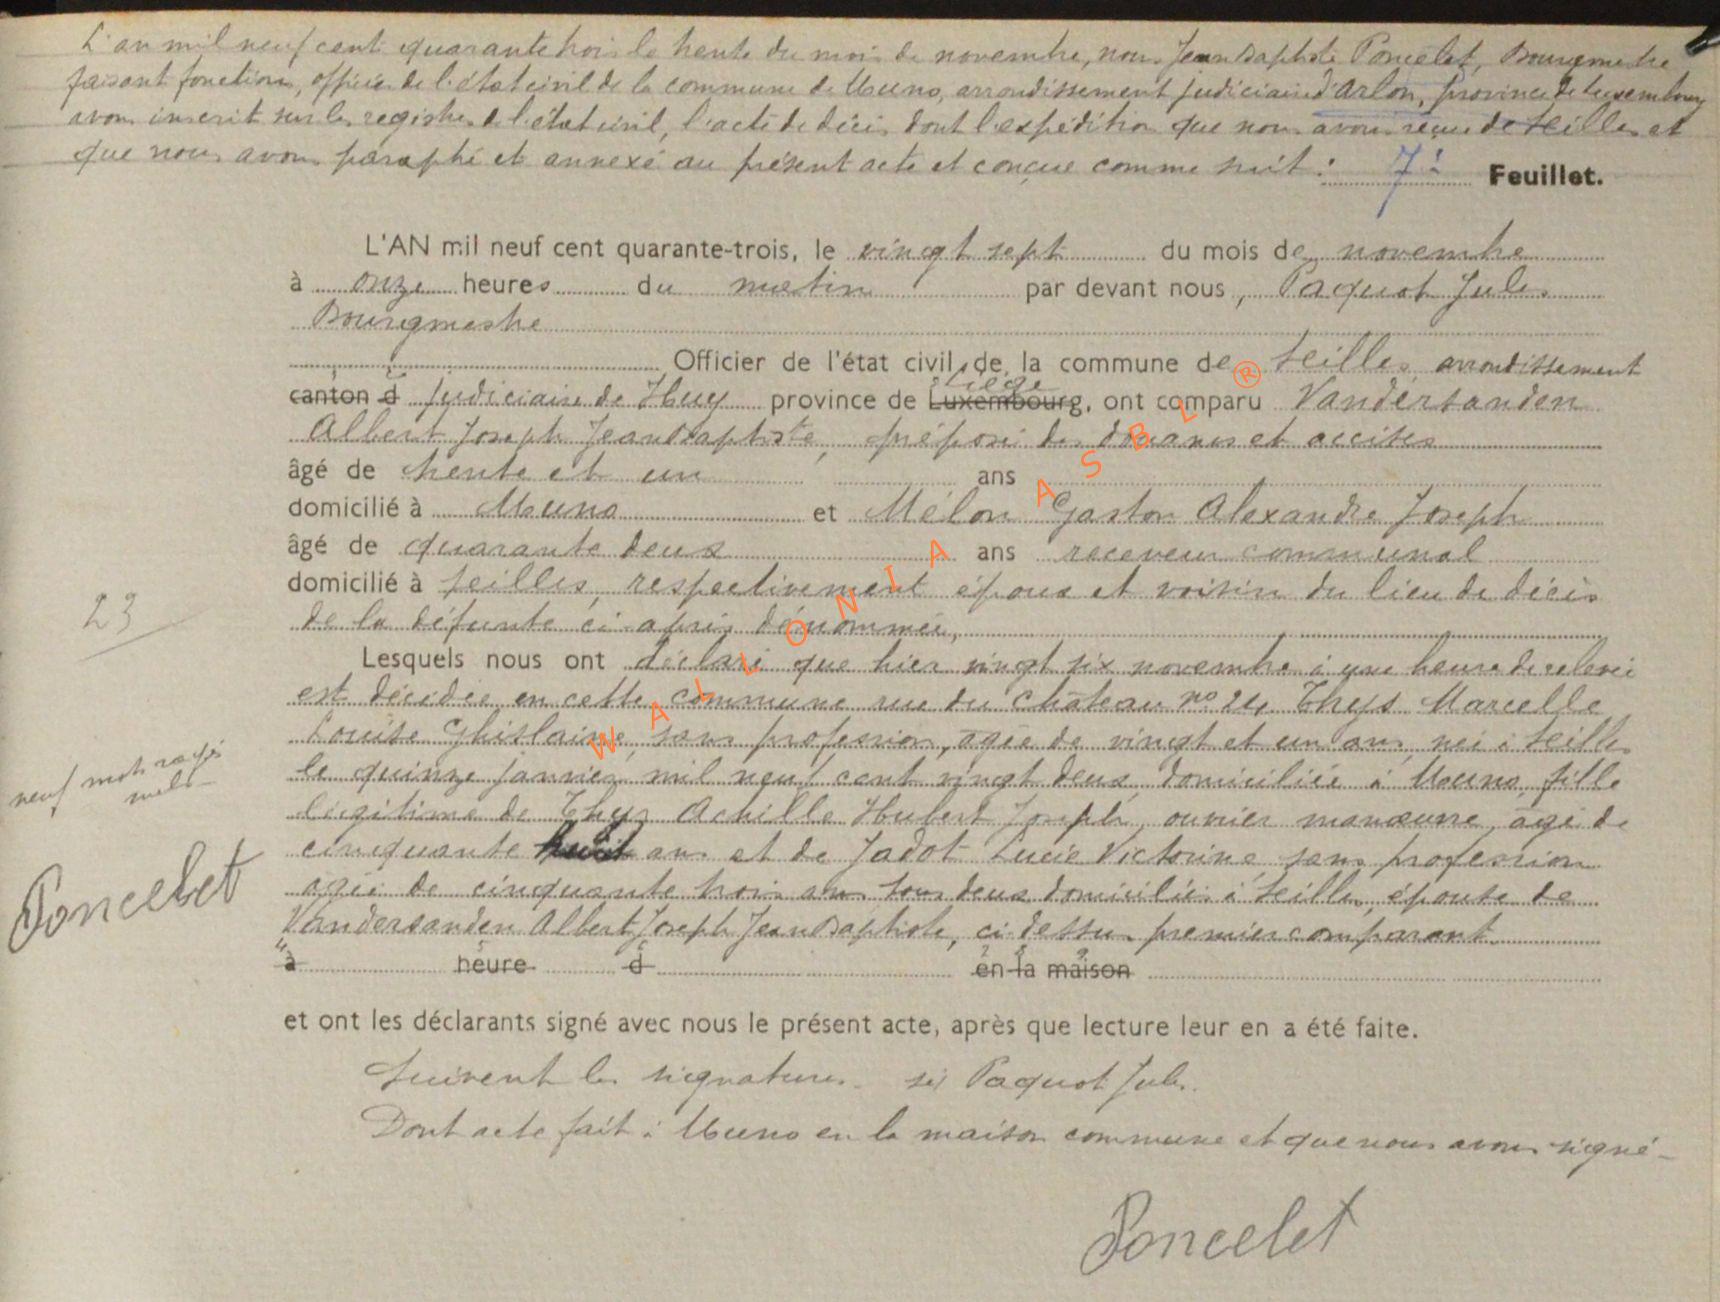 L'an mil neuf cent quarante trois le trente du mois de novembre, nous Jean Baptiste Poncelet, Bourgmestre
faisant fonctions, officier de l'état civil de la commune de Muno, arrondissement judiciaire d'Arlon, province de Luxembourg
avons inscrit sur les registres de l'état civil, l'acte de décès dont l'expédition que nous avons reçue de Seilles et
que nous avons paraphé et annexé au présent acte et conçue comme suit : 7e Feuillet.
L'AN mil neuf cent quarante-trois, le vingt sept du mois de novembre
à onze heures du matin par devant nous, Paquot Jules
Bourgmestre
Officier de l'état civil de la commune de Seilles arrondissement
Liège
canton d judiciaire de Huy province de Luxembourg, ont comparu Vandersanden
Albert Joseph Jean Baptiste, préposé des douanes et accises
âgé de trente et un ans
domicilié à Muno et Mélon Gaston Alexandre Joseph
âgé de quarante deux ans receveur communal
domicilié à Seilles, respectivement époux et voisin du lieu de décès
de la défunte ci-après dénommée,
Lesquels nous ont déclaré que hier vingt six novembre à une heure de relevée
est décédée en cette commune rue du Château no 24, Thys Marcelle
Louise Ghislaine, sans profession, âgée de vingt et un ans, née à Seilles
le quinze janvier mil neuf cent vingt deux, domiciliée à Muno, fille
légitime de Thys Achille Hubert Joseph, ouvrier manœuvre, âgé de
cinquante huit ans et de Jadot Lucie Victorine, sans profession
âgée de cinquante trois ans tous deux domiciliés à Seilles, épouse de
Vandersanden Albert Joseph Jean Baptiste, ci-dessus premier comparant
à heure d en la maison
et ont les déclarants signé avec nous le présent acte, après que lecture leur en a été faite.
Suivent les signatures. sé) Paquot Jules.
Dont acte fait à Muno en la maison commune et que nous avons signé -
Poncelet
23
neuf mots rayés
nuls -
Poncelet
WALLONIA ASBL ®